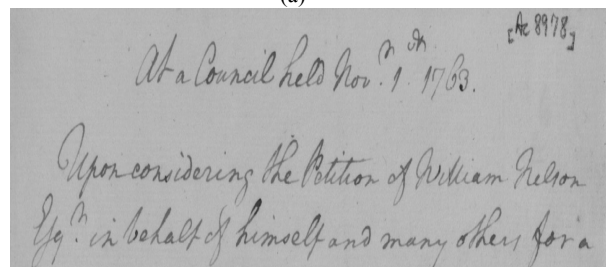 (a)
[Ac 8978]
At a Council held Novr. 1st. 1763.
Upon considering the Petition of William Nelson
Esqr. in behalf of himself and many others for a